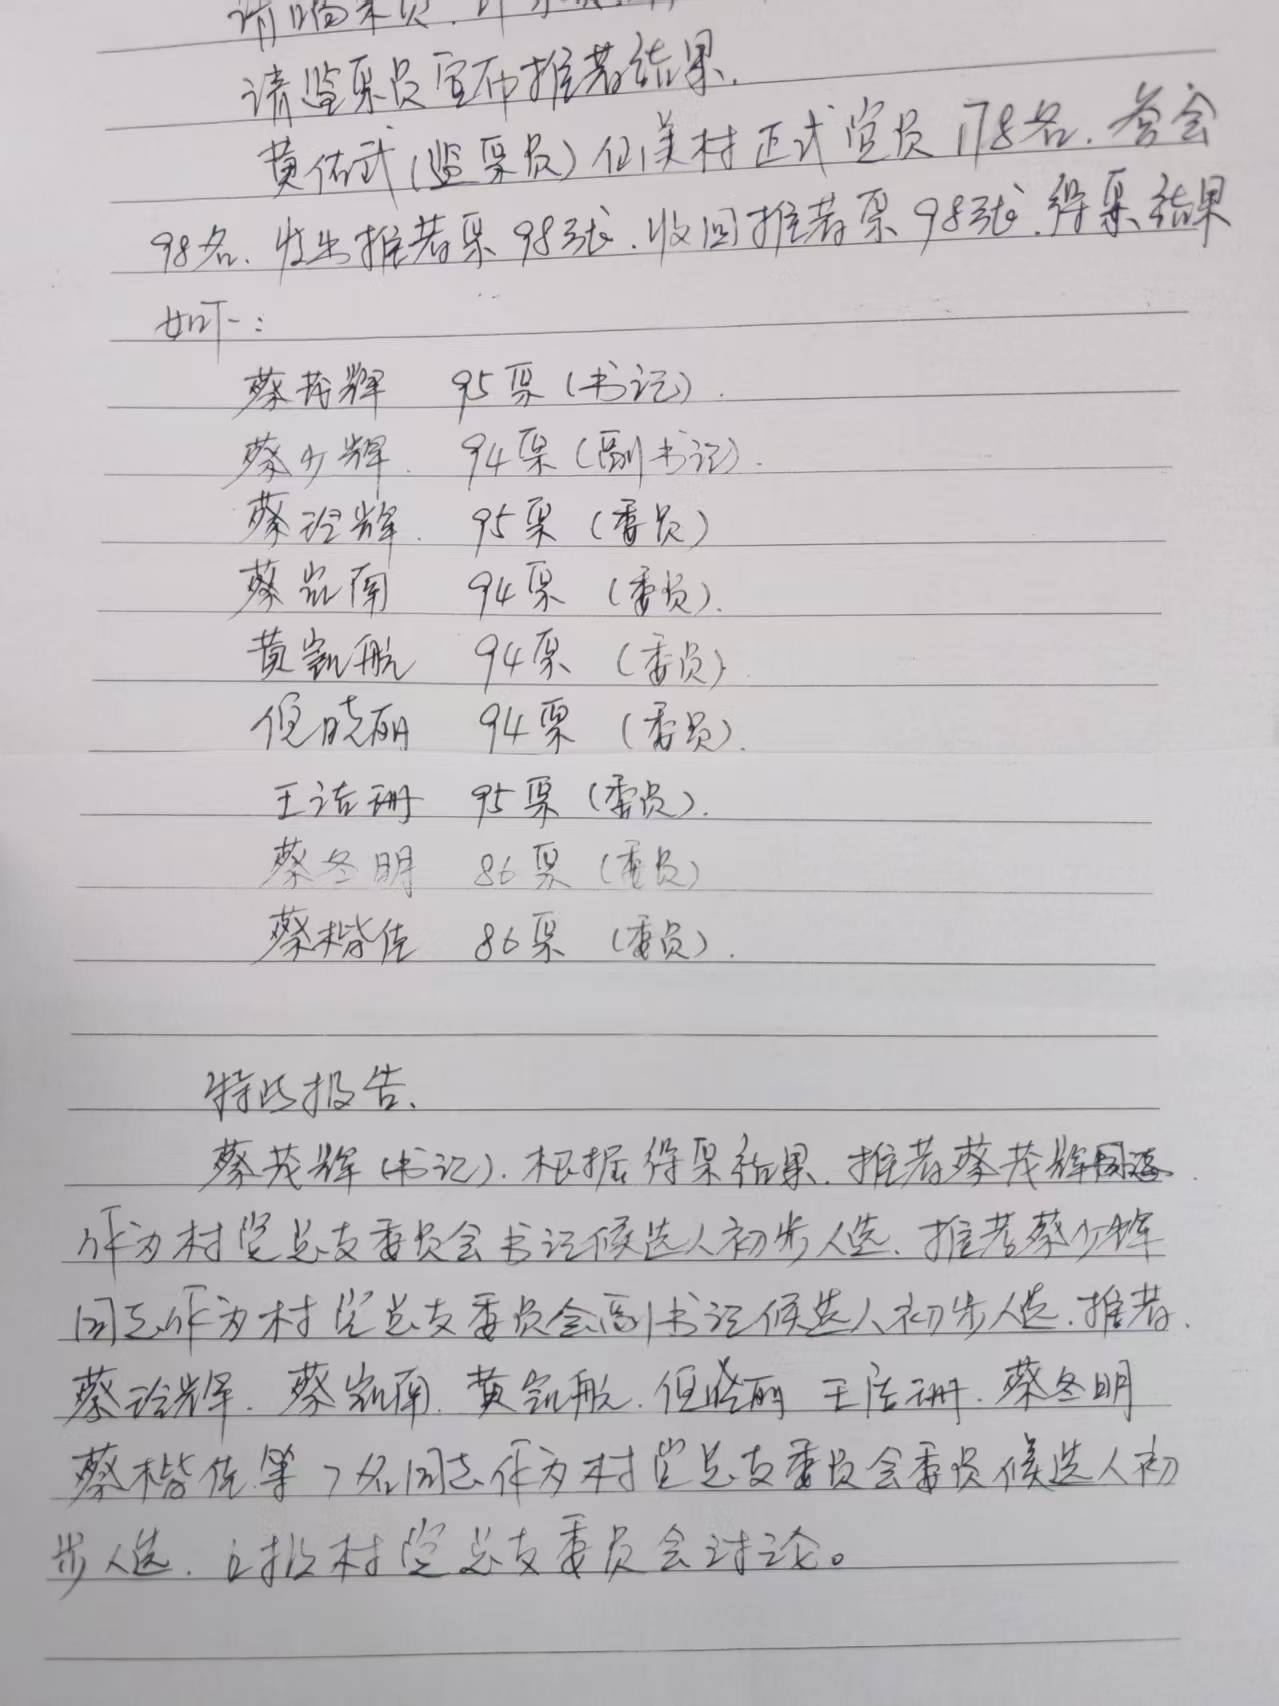 请监票员宣布推荐结果.
黄佑武(监票员)仙溪村正式党员178名.参会
98名.发出推荐票98张.收回推荐票98张.得票结果
如下:
蔡茂辉 95票(书记).
蔡少辉. 94票(副书记).
蔡玲辉. 95票(委员)
蔡凯南 94票(委员).
黄凯航 94票(委员).
倪晓丽 94票(委员).
王洁珊 95票(委员).
蔡冬明 86票(委员)
蔡楷佳 86票(委员).
特此报告.
蔡茂辉(书记).根据得票结果.推荐蔡茂辉同志
作为村党总支委员会书记候选人初步人选.推荐蔡少辉
同志作为村党总支委员会副书记候选人初步人选.推荐.
蔡玲辉.蔡凯南.黄凯航.倪晓丽 王洁珊.蔡冬明
蔡楷佳.等7名同志作为村党总支委员会委员候选人初
步人选.上报村党总支委员会讨论。